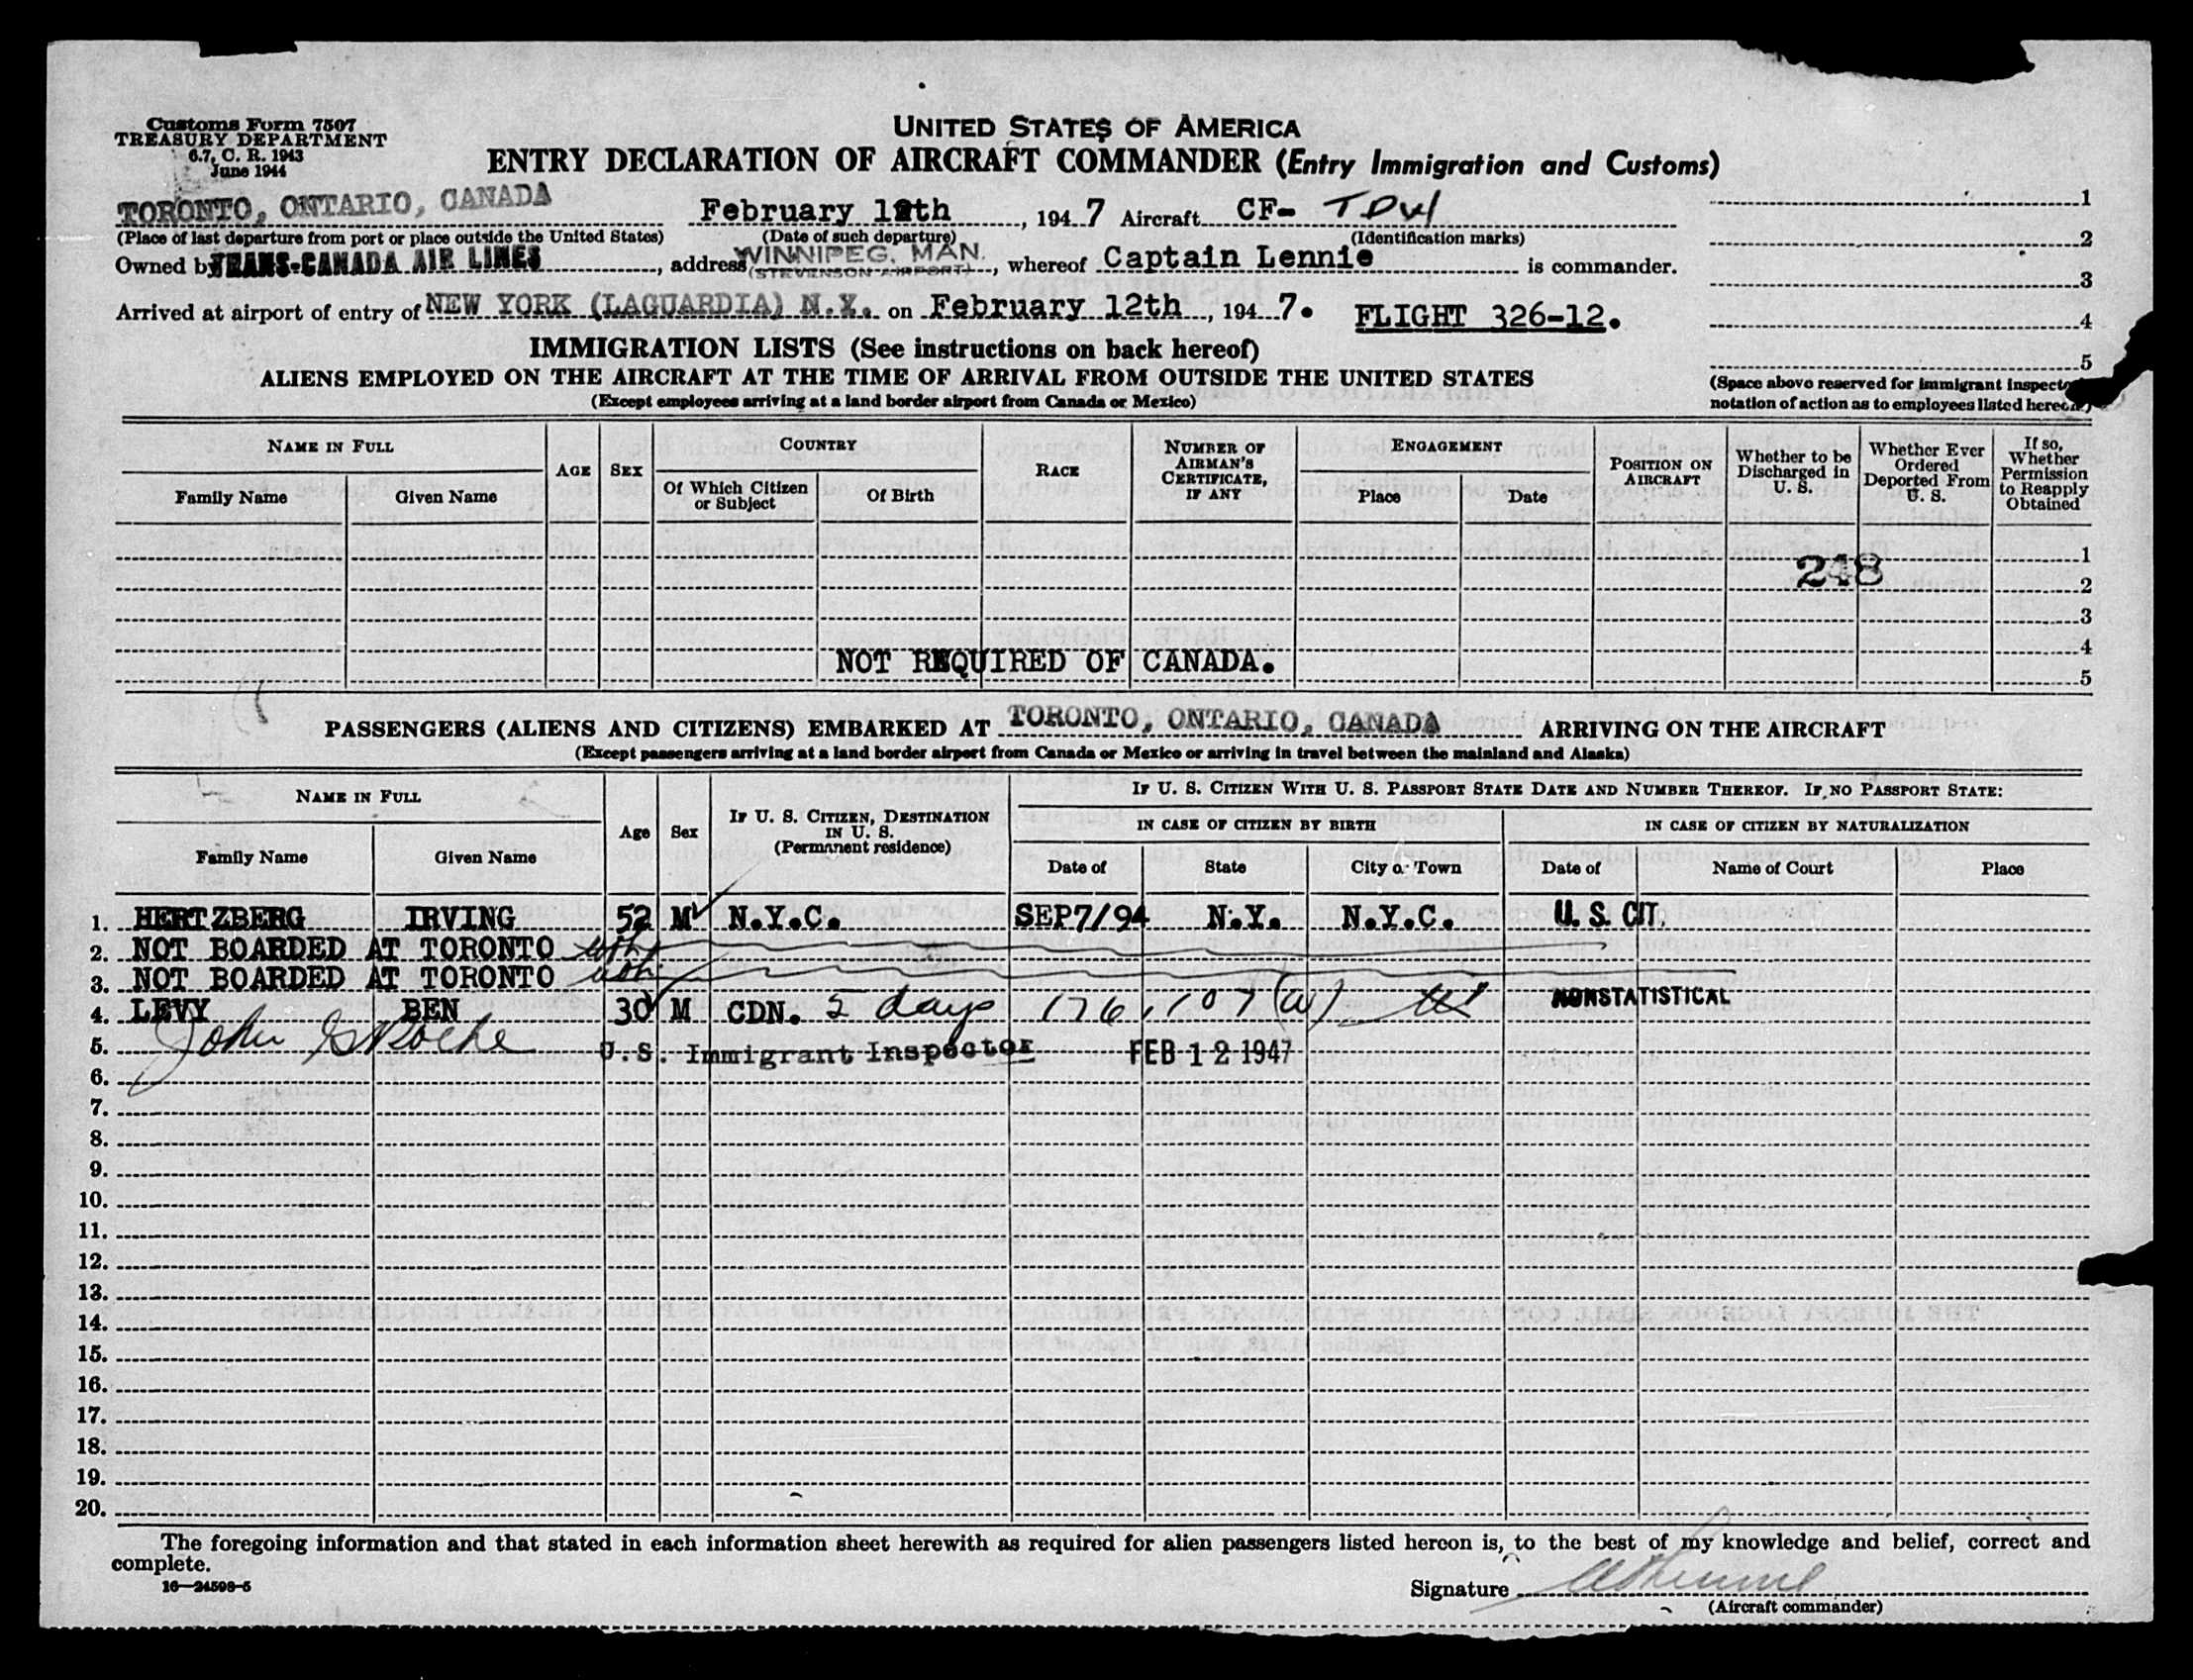 Customs Form 7507
TREASURY DEPARTMENT
6.7, C. R. 1943
June 1944
UNITED STATES OF AMERICA
ENTRY DECLARATION OF AIRCRAFT COMMANDER (Entry Immigration and Customs)
TORONTO, ONTARIO, CANADA February 12th, 1947 Aircraft CF- TDW
(Place of last departure from port or place outside the United States) (Date of such departure) (Identification marks)
Owned by TRANS-CANADA AIR LINES, address WINNIPEG, MAN. (STEVENSON AIRPORT), whereof Captain Lennie is commander.
Arrived at airport of entry of NEW YORK (LAGUARDIA) N.Y. on February 12th, 1947. FLIGHT 326-12.
1
2
3
4
5
(Space above reserved for immigrant inspector
notation of action as to employees listed hereon.)
IMMIGRATION LISTS (See instructions on back hereof)
ALIENS EMPLOYED ON THE AIRCRAFT AT THE TIME OF ARRIVAL FROM OUTSIDE THE UNITED STATES
(Except employees arriving at a land border airport from Canada or Mexico)
NAME IN FULL
Family Name Given Name
AGE SEX
COUNTRY
Of Which Citizen or Subject Of Birth
RACE
NUMBER OF AIRMAN'S CERTIFICATE, IF ANY
ENGAGEMENT
Place Date
POSITION ON AIRCRAFT
Whether to be Discharged in U. S.
Whether Ever Ordered Deported From U. S.
If so, Whether Permission to Reapply Obtained
1
248
2
3
4
NOT REQUIRED OF CANADA.
5
PASSENGERS (ALIENS AND CITIZENS) EMBARKED AT TORONTO, ONTARIO, CANADA ARRIVING ON THE AIRCRAFT
(Except passengers arriving at a land border airport from Canada or Mexico or arriving in travel between the mainland and Alaska)
NAME IN FULL
Family Name Given Name
Age Sex
IF U. S. CITIZEN, DESTINATION IN U. S. (Permanent residence)
IF U. S. CITIZEN WITH U. S. PASSPORT STATE DATE AND NUMBER THEREOF. IF NO PASSPORT STATE:
IN CASE OF CITIZEN BY BIRTH IN CASE OF CITIZEN BY NATURALIZATION
Date of State City or Town Date of Name of Court Place
1. HERTZBERG IRVING 52 M N.Y.C. SEP7/94 N.Y. N.Y.C. U. S. CIT.
2. NOT BOARDED AT TORONTO
3. NOT BOARDED AT TORONTO
4. LEVY BEN 30 M CDN. 5 days 176.107(a) NONSTATISTICAL
5. John Roche U.S. Immigrant Inspector FEB 12 1947
6.
7.
8.
9.
10.
11.
12.
13.
14.
15.
16.
17.
18.
19.
20.
The foregoing information and that stated in each information sheet herewith as required for alien passengers listed hereon is, to the best of my knowledge and belief, correct and
complete.
16—24598-5
Signature
(Aircraft commander)